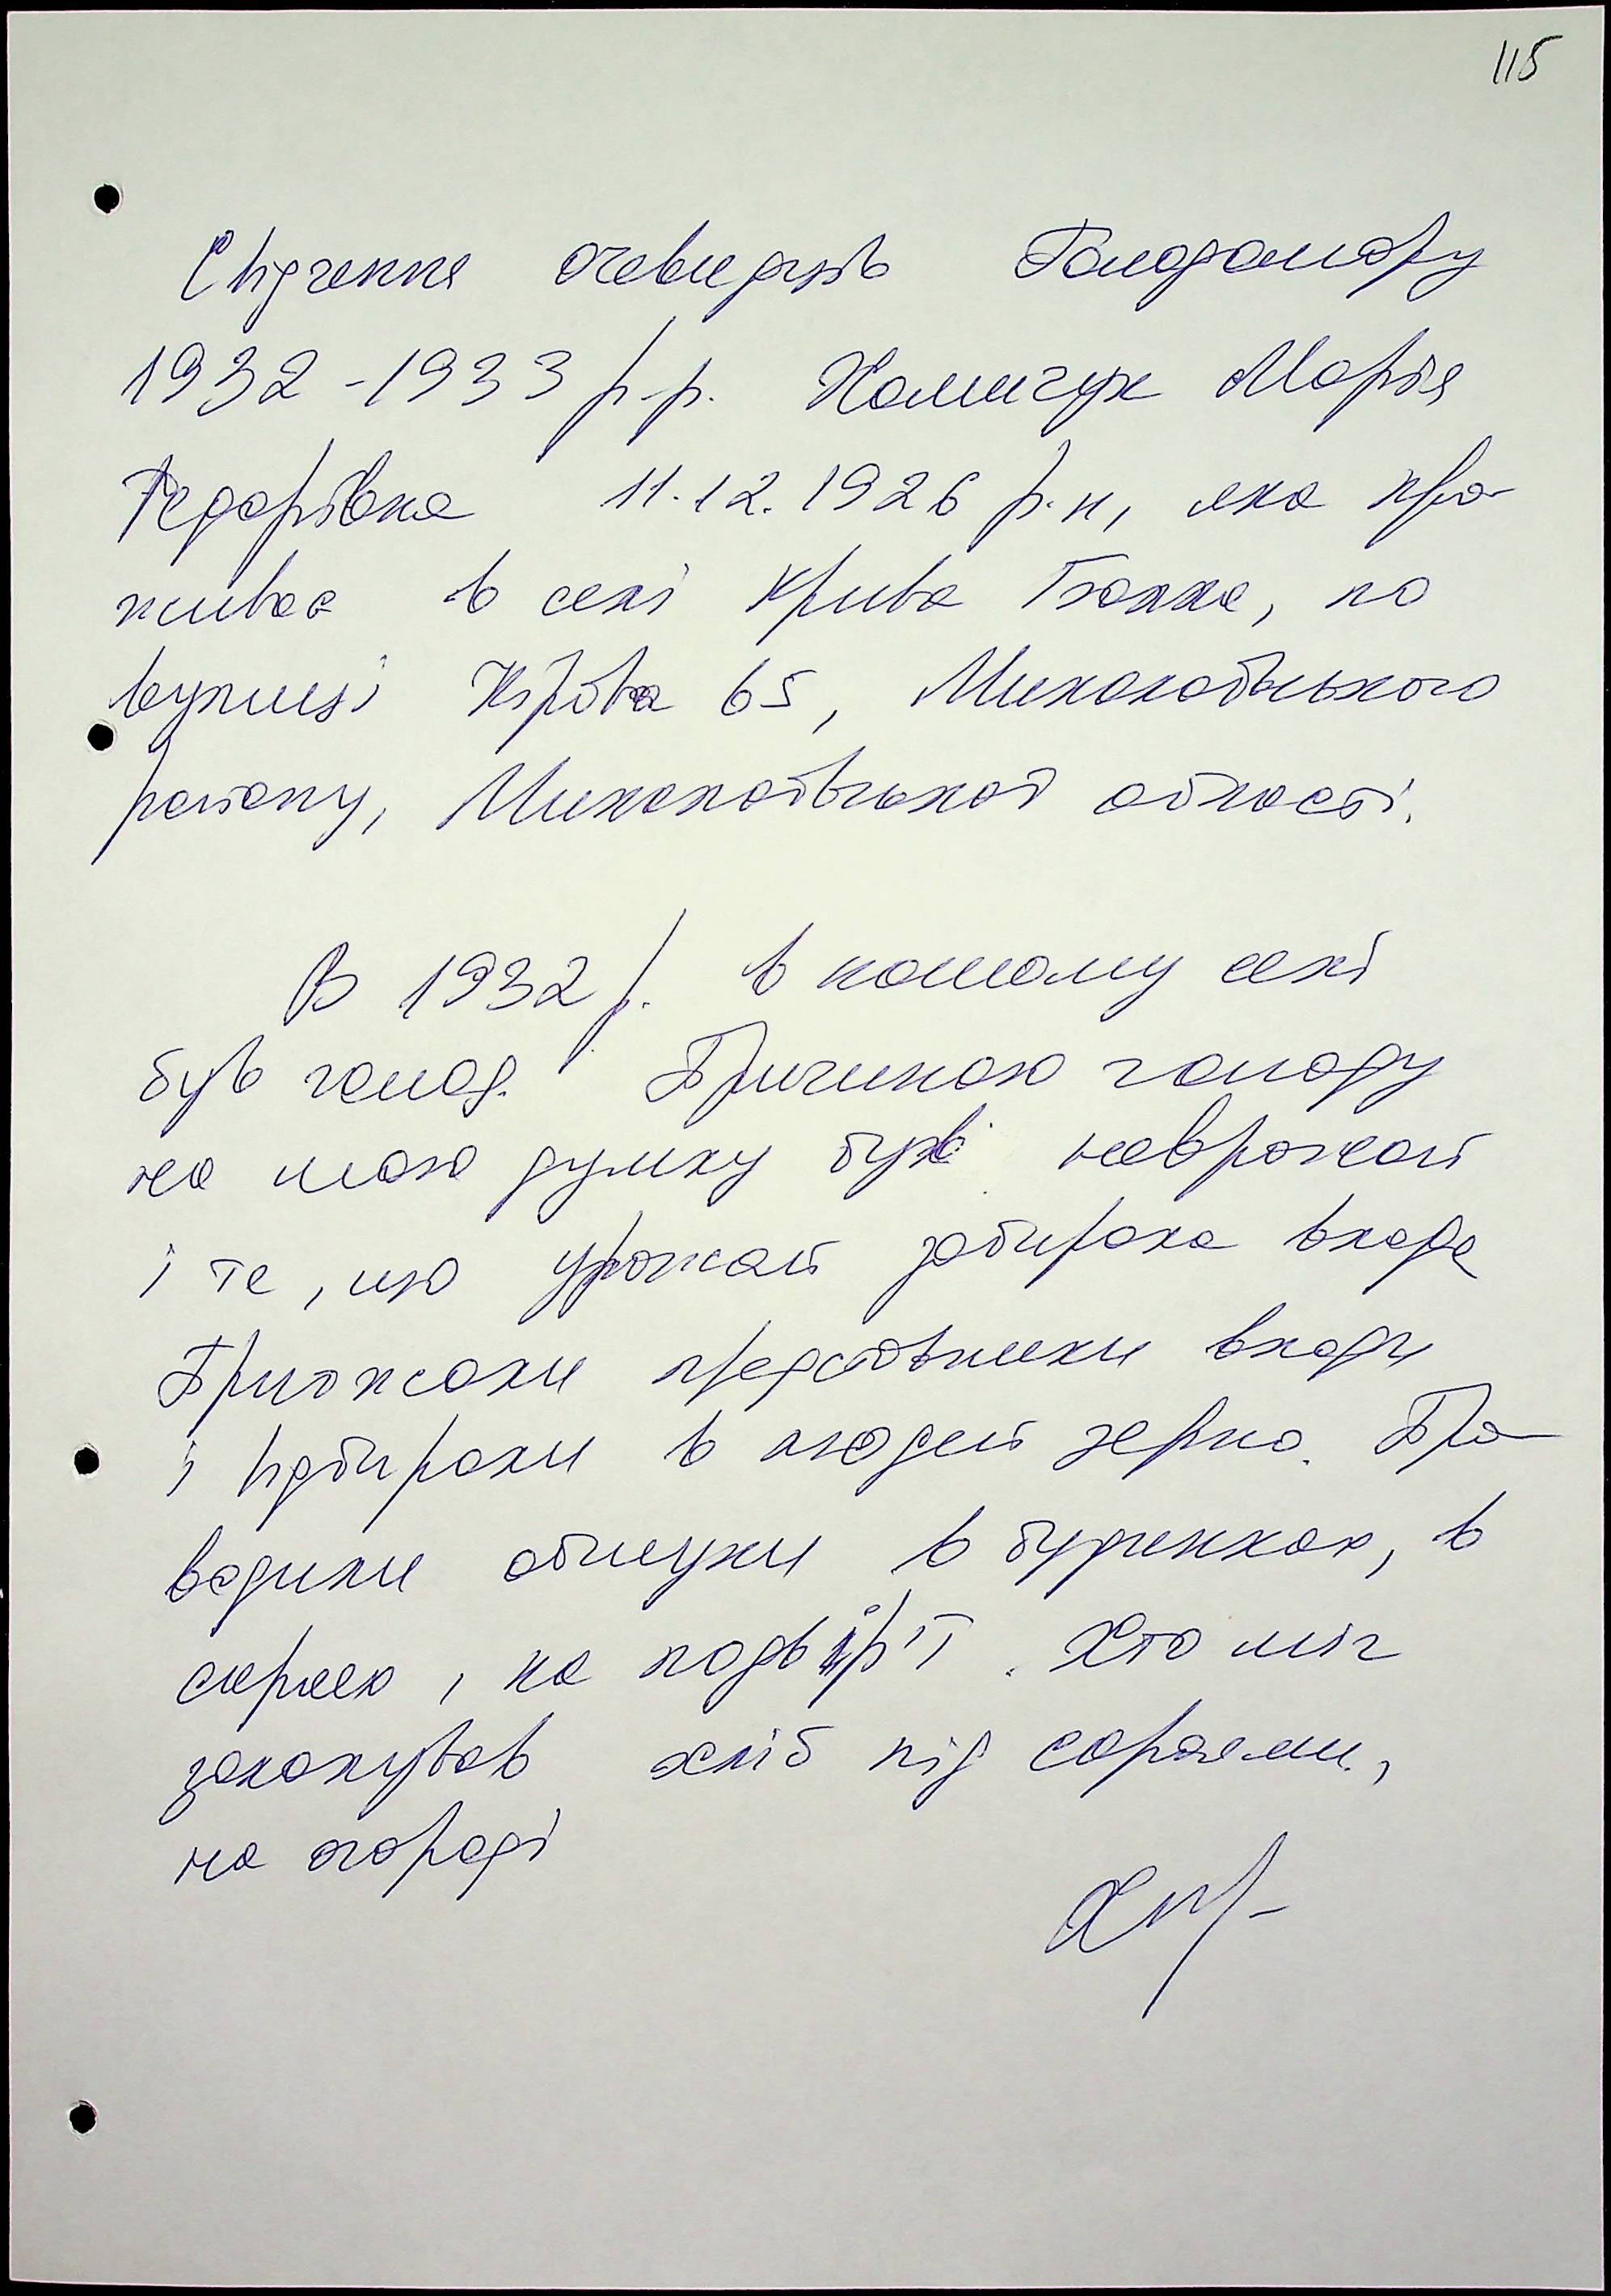 115
Свідчення очевидців Голодомору
1932-1933 р.р. Хомичук Марія
Федорівна 11.12.1926 р.н, яка про-
живає в селі Крива Балка, по
вулиці Кірова 65, Миколаївського
району, Миколаївської області.
В 1932 р. в нашому селі
був голод. Причиною голоду
на мою думку був неврожай
і те, що урожай забирала влада
Приїжжали представники влади
і відбирали в людей зерно. Про-
водили обшуки в будинках, в
сараях, на подвір'ї. Хто міг
закопував хліб під сараями,
на городі